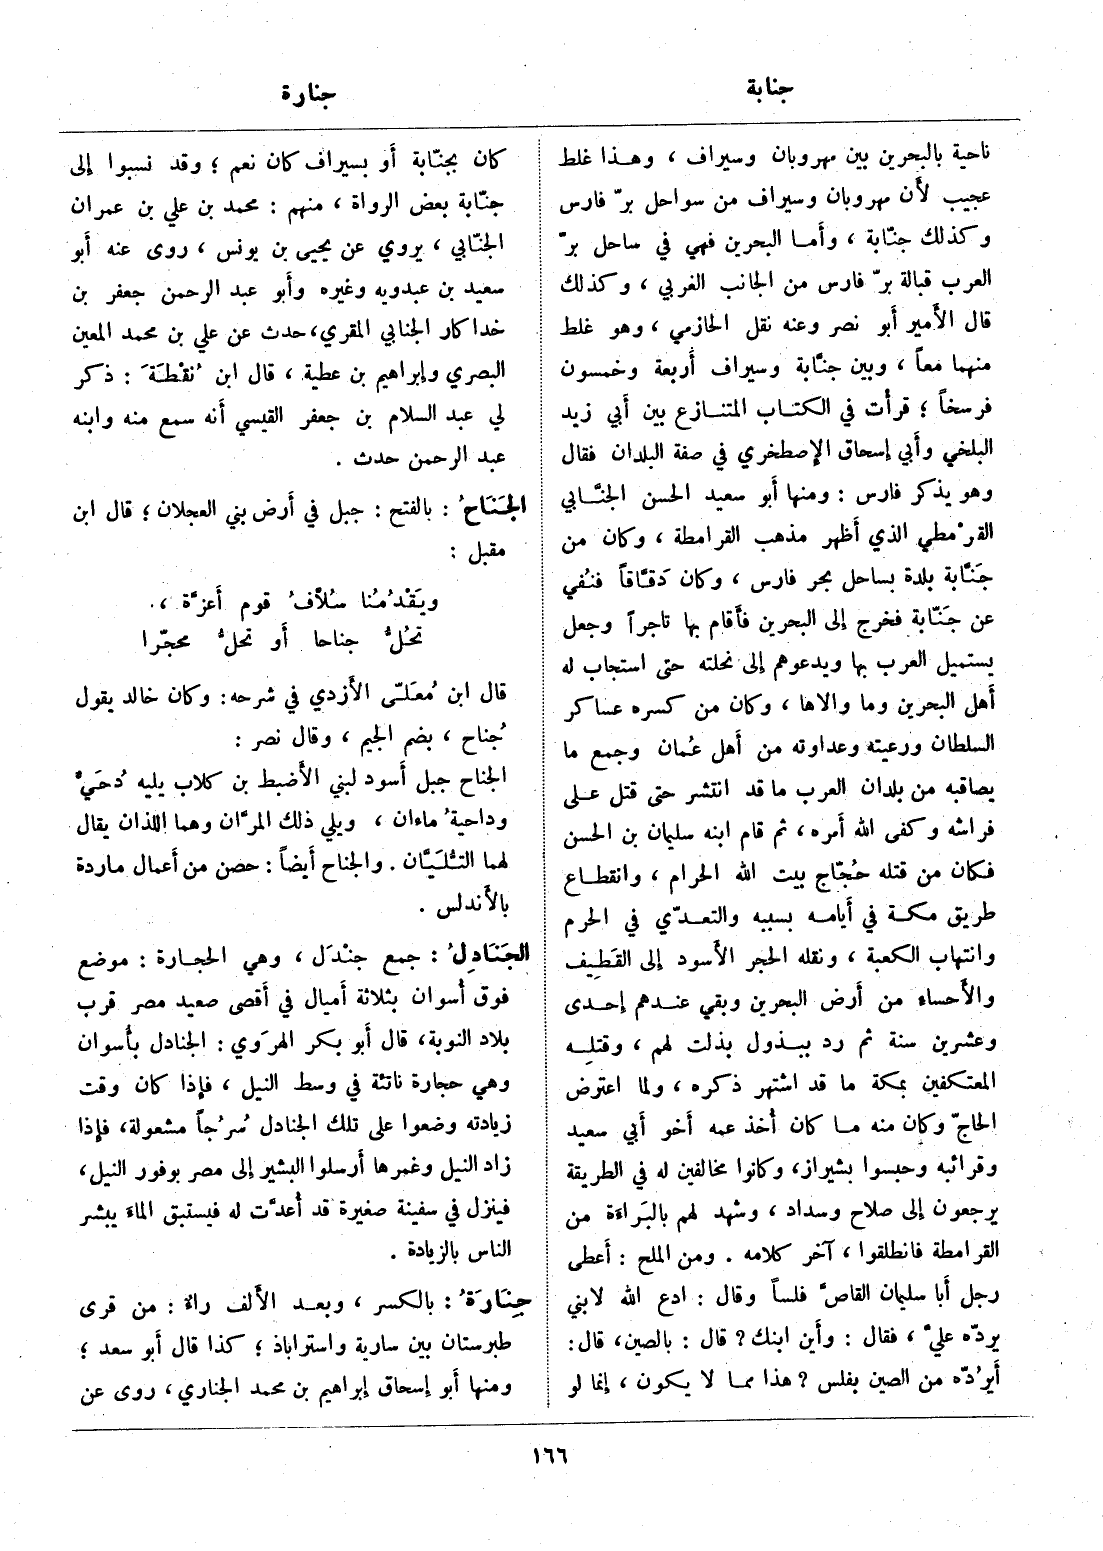 جنابة
جنارة
ناحية بالبحرين بين مهروبان وسيراف ، وهـذا غلط
عجيب لأن مهروبان وسيراف من سواحل برّ فارس
وكذلك جنّابة ، وأمـا البحرين فهي في ساحل برّ
العرب قبالة برّ فارس من الجانب الغربي ، وكذلك
قال الأمير أبو نصر وعنه نقل الحازمي ، وهو غلط
منهما معاً ، وبين جنّابة وسيراف أربعة وخمسون
فرسخاً ؛ قرأت في الكتـاب المتنـازع بين أبي زيد
البلخي وأبي إسحاق الإصطخري في صفة البلدان فقال
وهو يذكر فارس : ومنها أبو سعيد الحسن الجنّـابي
القرْمطي الذي أظهر مذهب القرامطة ، وكان من
جَنّابة بلدة بساحل بحر فارس ، وكان دَقّاقاً فنُفي
عن جَنّابة فخرج إلى البحرين فأقام بها تاجراً وجعل
يستميل العرب بها ويدعوهم إلى نحلته حتى استجاب له
أهل البحرين وما والاها ، وكان من كسره عساكر
السلطان ورعيته وعداوته من أهل عُمان وجمع ما
يصاقبه من بلدان العرب ما قد انتشر حتى قتل عـلى
فراشه وكفى الله أمره ، ثم قام ابنه سليمان بن الحسن
فكان من قتله حُجّاج بيت الله الحرام ، وانقطـاع
طريق مكـة في أيامـه بسببه والتعـدّي في الحرم
وانتهاب الكعبة ، ونقله الحجر الأسود إلى القَطِيف
والأحساء من أرض البحرين وبقي عنـدهم إحـدى
وعشرين سنة ثم رد ببـذول بذلت لهم ، وقتلـه
المعتكفين بمكة ما قد اشتهر ذكره ، ولما اعترض
الحاجّ وكان منه مـا كان أُخذ عمه أخو أبي سعيد
وقرائبه وحبسوا بشيراز، وكانوا مخالفين له في الطريقة
يرجعون إلى صلاح وسداد ، وشهد لهم بالبَراءة من
القرامطة فانطلقوا ، آخر كلامه . ومن الملح : أعطى
رجل أبا سليمان القاصّ فلساً وقال : ادع الله لابني
يردّه عليّ ، فقال : وأين ابنك ؟ قال : بالصين، قال:
أيرُدّه من الصين بفلس ؟ هذا مما لا يكون ، إنما لو
كان بجنّابة أو بسيراف كان نعم ؛ وقد نسبوا إلى
جنّابة بعض الرواة ، منهم : محمد بن علي بن عمران
الجنّابي ، يروي عن يحيى بن يونس ، روى عنه أبو
سعيد بن عبدويه وغيره وأبو عبد الرحمن جعفر بن
خداكار الجنابي المقري، حدث عن علي بن محمد المعين
البصري وإبراهيم بن عطية ، قال ابن نُقْطَةَ : ذكر
لي عبد السلام بن جعفر القيسي أنه سمع منه وابنه
عبد الرحمن حدث .
الجَنَاحُ : بالفتح : جبل في أرض بني العجلان ؛ قال ابن
مقبل :
ويَقْدُمُنا سُلاّفُ قوم أعزّة ،
تحُلّ جناحا أو تحلّ محجّرا
قال ابن مُعَلّى الأزدي في شرحه: وكان خالد يقول
جُناح ، بضم الجيم ، وقال نصر :
الجناح جبل أسود لبني الأضبط بن كلاب يليه دُحَيّ
وداحيةُ ماءان ، ويلي ذلك المرّان وهما اللذان يقال
لهما التُّلَيّان . والجناح أيضاً : حصن من أعمال ماردة
بالأندلس .
الجَنَادِلُ : جمع جنْدَل ، وهي الحجـارة : موضع
فوق أُسوان بثلاثة أميال في أقصى صعيد مصر قرب
بلاد النوبة، قال أبو بكر الهرَوي : الجنادل بأسوان
وهي حجارة ناتئة في وسط النيل ، فإذا كان وقت
زيادته وضعوا على تلك الجنادل سُرُجاً مشعولة، فإذا
زاد النيل وغمرها أرسلوا البشير إلى مصر بوفور النيل،
فينزل في سفينة صغيرة قد أُعدّت له فيستبق الماءَ يبشر
الناس بالزيادة .
جِنَارَةُ : بالكسر ، وبعـد الألف راءٌ : من قرى
طبرستان بين سارية واستراباذ ؛ كذا قال أبو سعد ؛
ومنها أبو إسحاق إبراهيم بن محمد الجناري ، روى عن
١٦٦